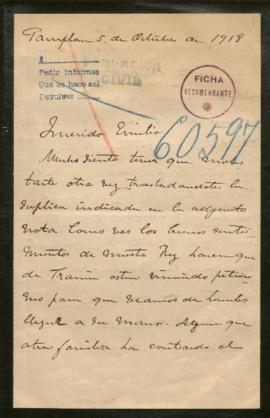 Pamplona 5 de Octubre de 1918
A
Pedir informes
Que se hace así
Devolver
POBLACION
CIVIL
FICHA
RECOMENDANTE
60597
Querido Emilio
Mucho siento tener que
tarte otra vez trasladandote la
suplica indicada en la adjunta
nota. Como ves los buenos senti-
mientos de nuestro Rey hacen que
de Francia esten viniendo peticio-
nes para que
llegue a sus manos. Alguno que
otra familia ha contado el